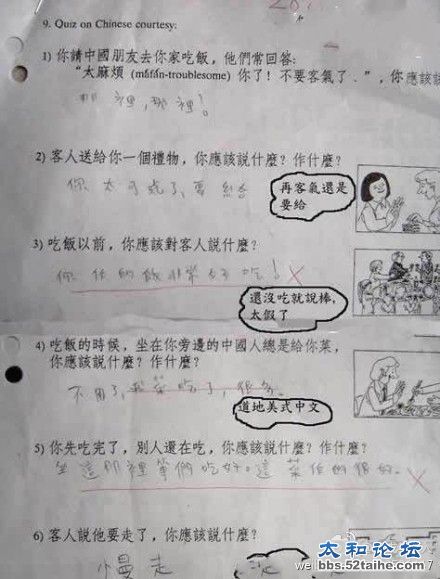 9. Quiz on Chinese courtesy:
1) 你請中國朋友去你家吃飯，他們常回答:
“太麻煩 (máfán-troublesome) 你了! 不要客氣了．”, 你應該
那裡,那裡!
2) 客人送給你一個禮物, 你應該說什麼? 作什麼?
你太可
再客氣還是
要給
3) 吃飯以前, 你應該對客人說什麼?
你 的飯非常好吃!
還沒吃就說棒,
太假了
4) 吃飯的時候, 坐在你旁邊的中國人總是給你菜,
你應該說什麼? 作什麼?
不用了,
道地美式中文
5) 你先吃完了, 別人還在吃, 你應該說什麼? 作什麼?
吃好。這菜 的很好。
6) 客人說他要走了, 你應該說什麼?
慢走
太和论坛
bbs.52taihe.com